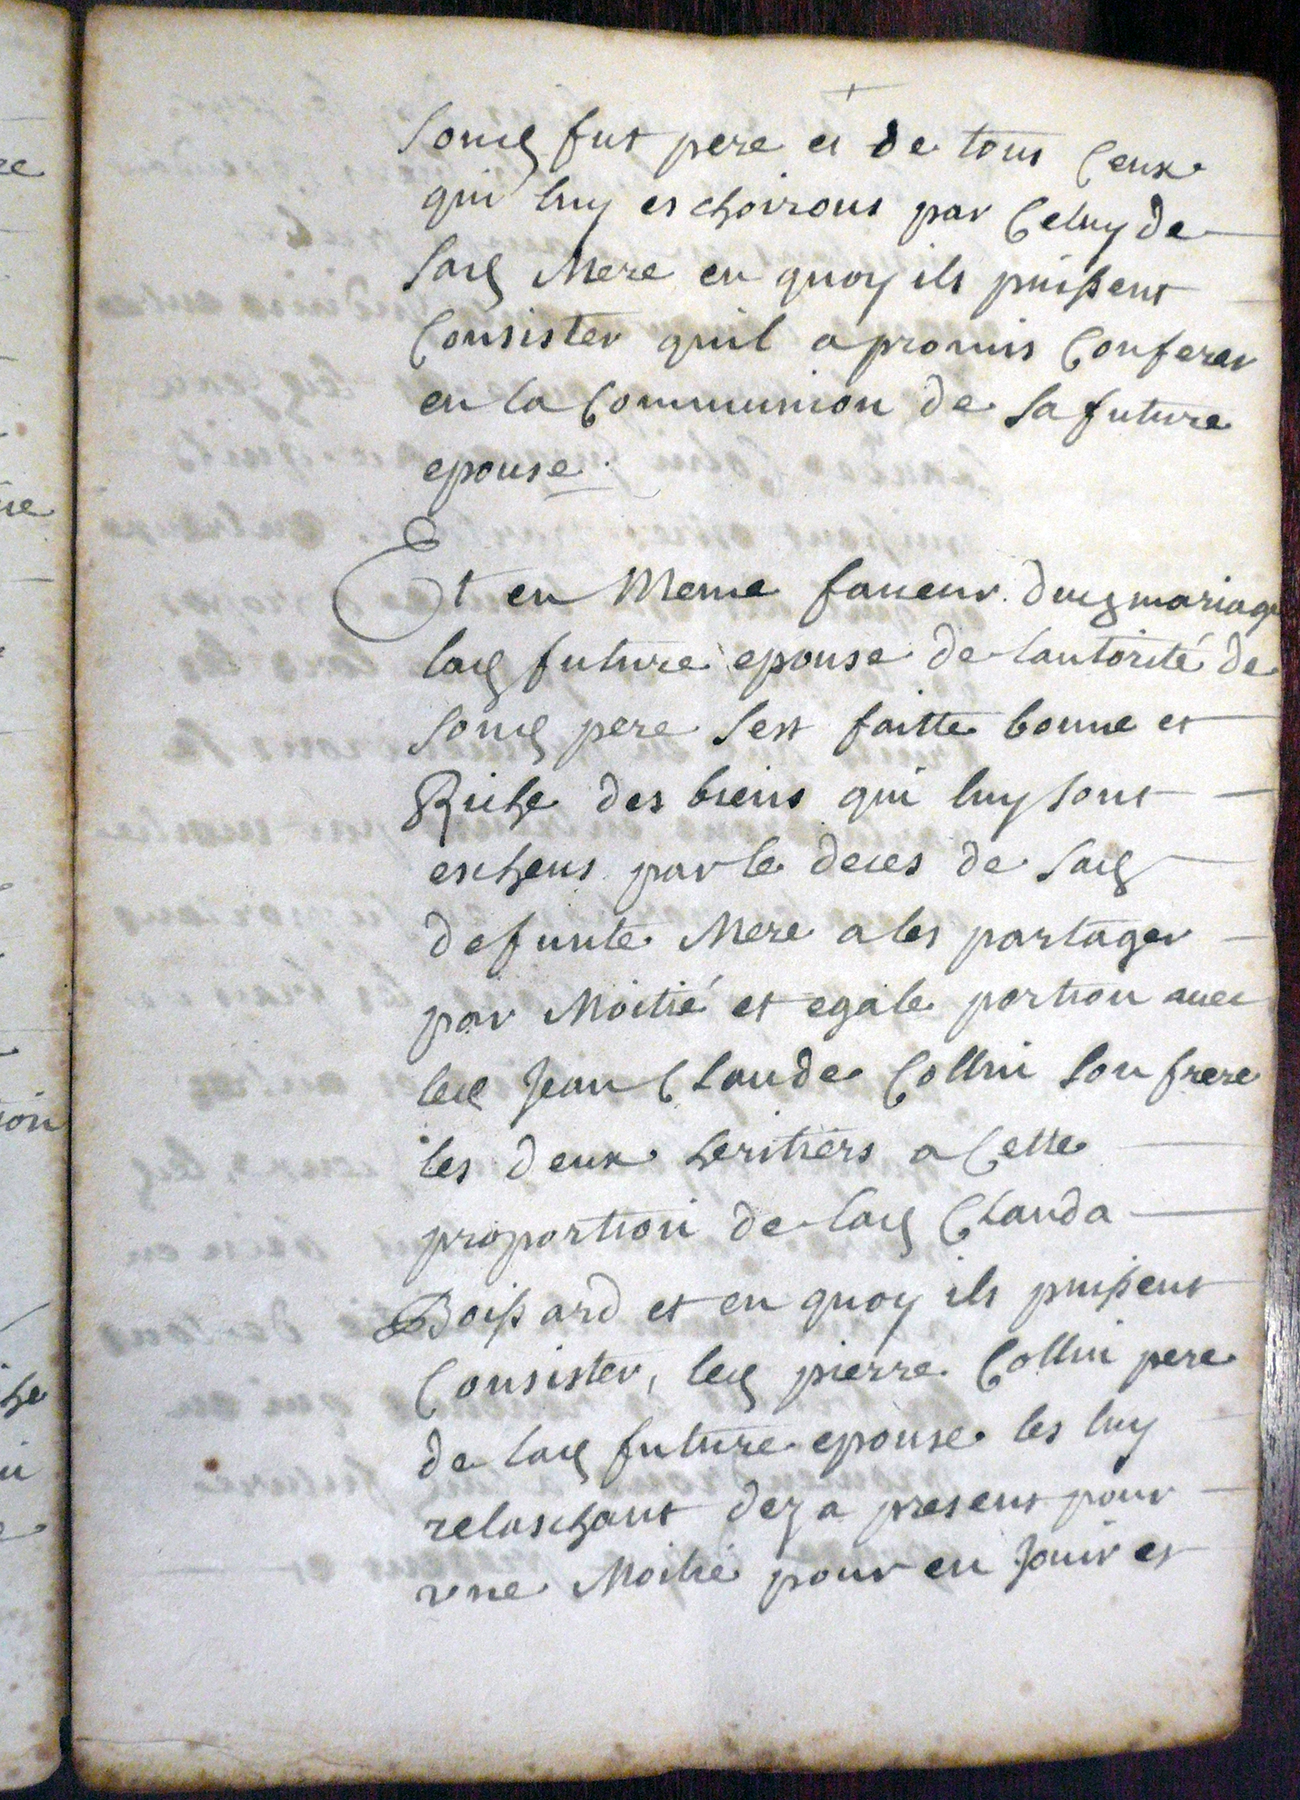 sond fut pere et de tous ceux
qui luy eschoirons par celuy de
sad Mere en quoy ils puissent
Consister quil a promis Conferer
en la Communion de sa future
epouse.
Et en Meme faueur dud mariage
lad future epouse de lautorité de
sond pere sest faitte bonne et
Riche des biens qui luy sont
escheus par le deces de sad
defunte Mere a les partager
par Moitié et egale portion auec
led Jean Claude Collin son frere
les deux heritiers a Cette
proportion de lad Clauda
Boissard et en quoy ils puissent
Consister, led pierre Collin pere
de lad future epouse les luy
relaschant dez a present pour
vne Moitié pour en Jouir et
re
ne
ion
che